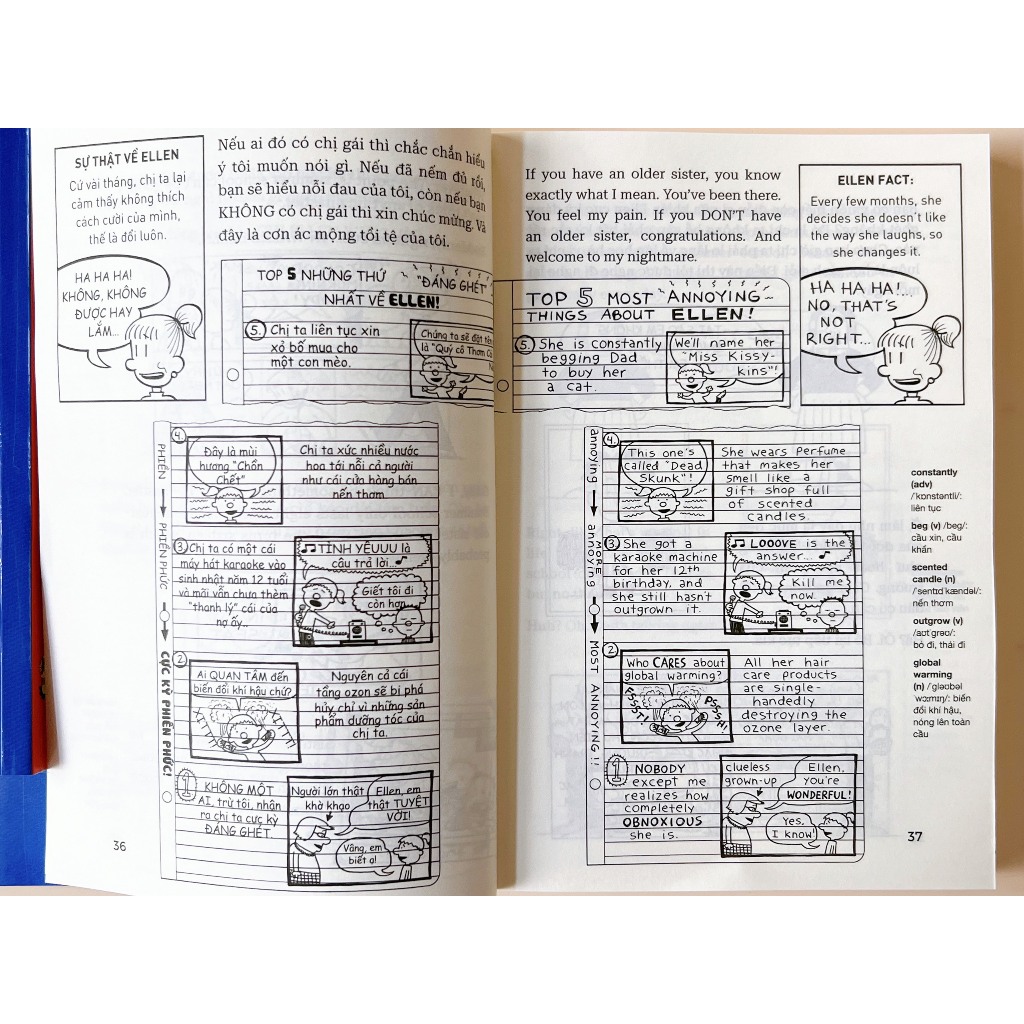 SỰ THẬT VỀ ELLEN
Cứ vài tháng, chị ta lại
cảm thấy không thích
cách cười của mình,
thế là đổi luôn.
HA HA HA!
KHÔNG, KHÔNG
ĐƯỢC HAY
LẮM...
Nếu ai đó có chị gái thì chắc chắn hiểu
ý tôi muốn nói gì. Nếu đã nếm đủ rồi,
bạn sẽ hiểu nỗi đau của tôi, còn nếu bạn
KHÔNG có chị gái thì xin chúc mừng. Và
đây là cơn ác mộng tồi tệ của tôi.
TOP 5 NHỮNG THỨ "ĐÁNG GHÉT"
NHẤT VỀ ELLEN!
5. Chị ta liên tục xin
xỏ bố mua cho
một con mèo.
Chúng ta sẽ đặt tên
là "Quý cô Thơm
PHIỀN
PHIỀN PHỨC
CỰC KỲ PHIỀN PHỨC!
4
Đây là mùi
hương "Chồn
Chết"
Chị ta xức nhiều nước
hoa tới nỗi cả người
như cái cửa hàng bán
nến thơm
3 Chị ta có một cái
máy hát karaoke vào
sinh nhật năm 12 tuổi
và mãi vẫn chưa thèm
"thanh lý" cái của
nợ ấy..
♫ TÌNH YÊUUU là
câu trả lời... ♪
Giết tôi đi
còn hơn
2
Ai QUAN TÂM đến
biến đổi khí hậu chứ?
Nguyên cả cái
tầng ozon sẽ bị phá
hủy chỉ vì những sản
phẩm dưỡng tóc của
chị ta.
1 KHÔNG MỘT
AI, trừ tôi, nhận
ra chị ta cực kỳ
ĐÁNG GHÉT.
Người lớn thật
khờ khạo
Ellen, em
thật TUYỆT
VỜI!
Vâng, em
biết ạ!
36
If you have an older sister, you know
exactly what I mean. You've been there.
You feel my pain. If you DON'T have
an older sister, congratulations. And
welcome to my nightmare.
ELLEN FACT:
Every few months, she
decides she doesn't like
the way she laughs, so
she changes it.
HA HA HA!...
NO, THAT'S
NOT
RIGHT...
TOP 5 MOST ANNOYING
THINGS ABOUT ELLEN!
5. She is constantly
begging Dad
to buy her
a cat.
We'll name her
"Miss Kissy-
kins"!
annoying
MORE annoying
MOST ANNOYING!!
4.
This one's
called "Dead
Skunk"!
She wears perfume
that makes her
smell like a
gift shop full
of scented
candles.
3 She got a
karaoke machine
for her 12th
birthday, and
she still hasn't
outgrown it.
♫ LOOOVE is the
answer... ♪
Kill me
now.
2
Who CARES about
global warming?
PSSST!
PSSSH!
All her hair
care products
are single-
handedly
destroying the
ozone layer.
1 NOBODY
except me
realizes how
completely
OBNOXIOUS
she is.
clueless
grown-up
Ellen,
you're
WONDERFUL!
Yes,
I know!
constantly
(adv)
/ˈkɒnstəntli/:
liên tục
beg (v) /beg/:
cầu xin, cầu
khẩn
scented
candle (n)
/ˈsentɪdˈkændəl/:
nến thơm
outgrow (v)
/aʊtˈgrəʊ/:
bỏ đi, thải đi
global
warming
(n) /ˈgləʊbəl
ˈwɔːmɪŋ/: biến
đổi khí hậu,
nóng lên toàn
cầu
37